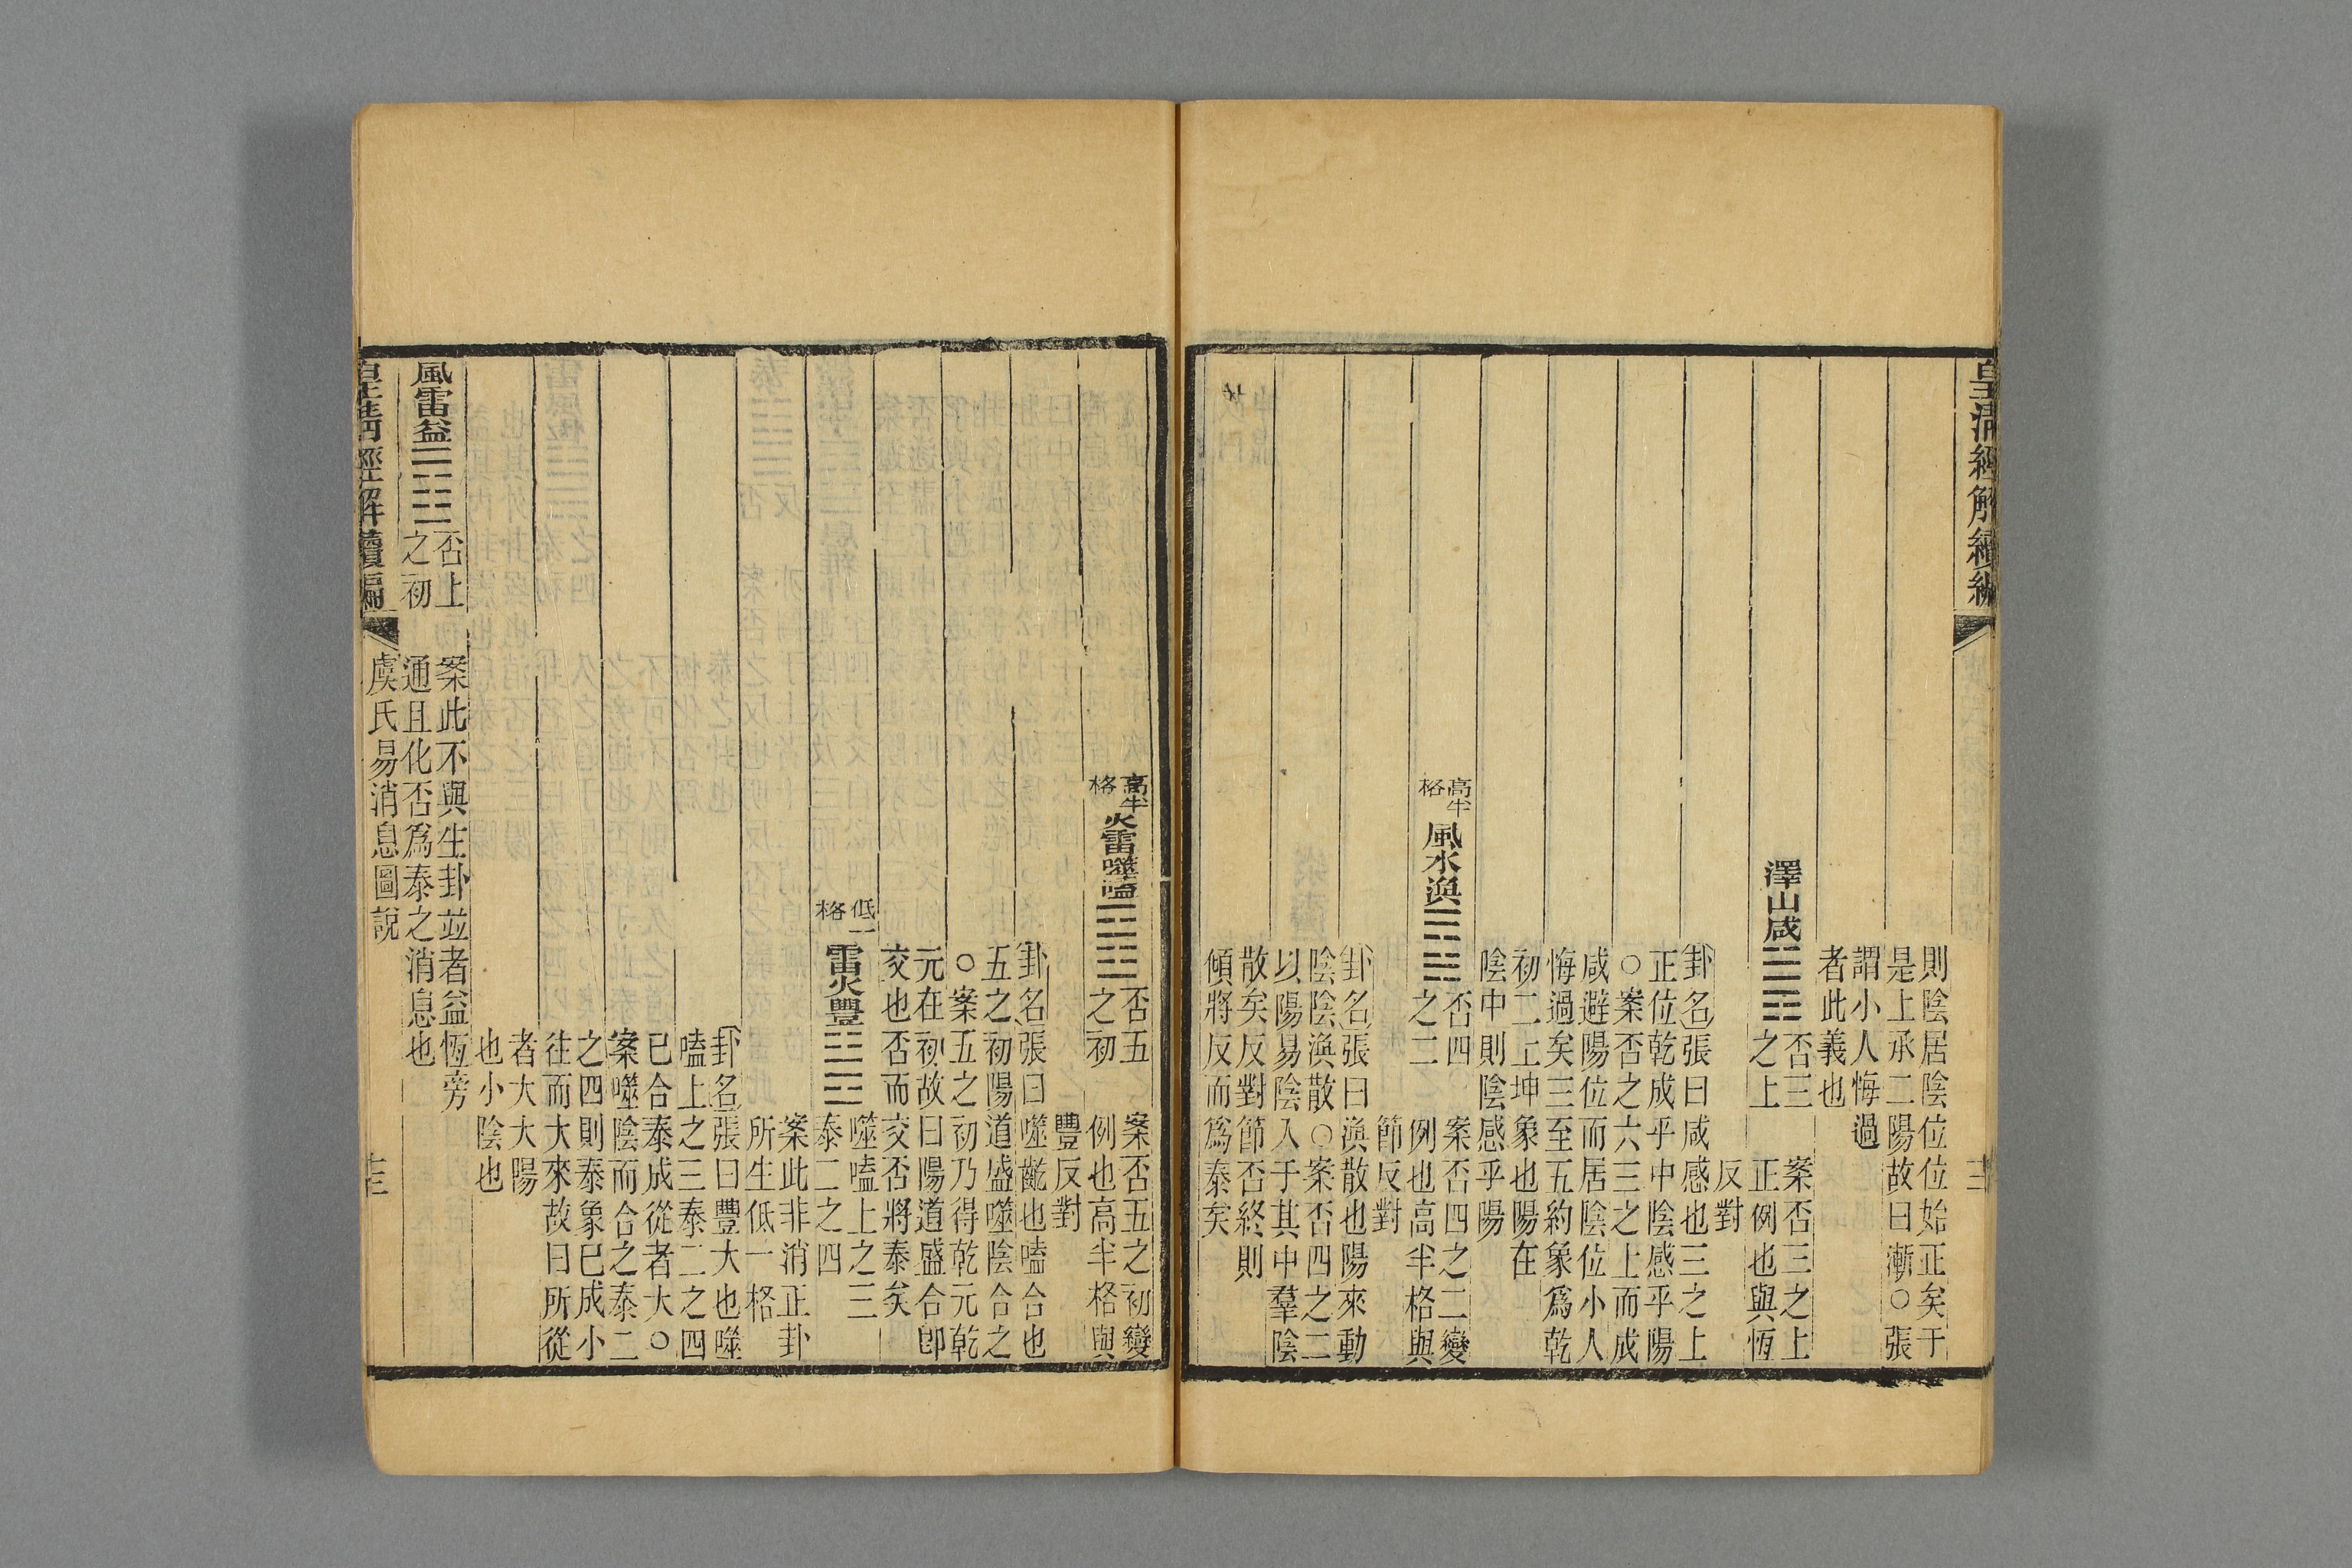 皇淸經解續編
則陰居陰位位始正矣于
是上承二陽故曰漸○張
謂小人悔過
者此義也
澤山咸䷞否三之上
案否三之上
正例也與恆
反對
卦名張曰咸感也三之上
正位乾成乎中陰感乎陽
○案否之六三之上而成
咸避陽位而居陰位小人
悔過矣三至五約象爲乾
初二上坤象也陽在
陰中則陰感乎陽
高半格
風水渙䷺否四之二
案否四之二變
例也高半格與
節反對
卦名張曰渙散也陽來動
陰陰渙散○案否四之二
以陽易陰入于其中羣陰
散矣反對節否終則
傾將反而爲泰矣
高半格
火雷噬嗑䷔否五之初
案否五之初變
例也高半格與
豐反對
卦名張曰噬齕也嗑合也
五之初陽道盛噬陰合之
○案五之初乃得乾元乾
元在初故曰陽道盛合卽
交也否而交否將泰矣
低一格
雷火豐䷶噬嗑上之三
泰二之四
案此非消正卦
所生低一格
卦名張曰豐大也噬
嗑上之三泰二之四
已合泰成從者大○
案噬陰而合之泰二
之四則泰象已成小
往而大來故曰所從
者大大陽
也小陰也
風雷益䷩否上之初
案此不與生卦並者益恆旁
通且化否爲泰之消息也
皇淸經解續編
虞氏易消息圖說
十三